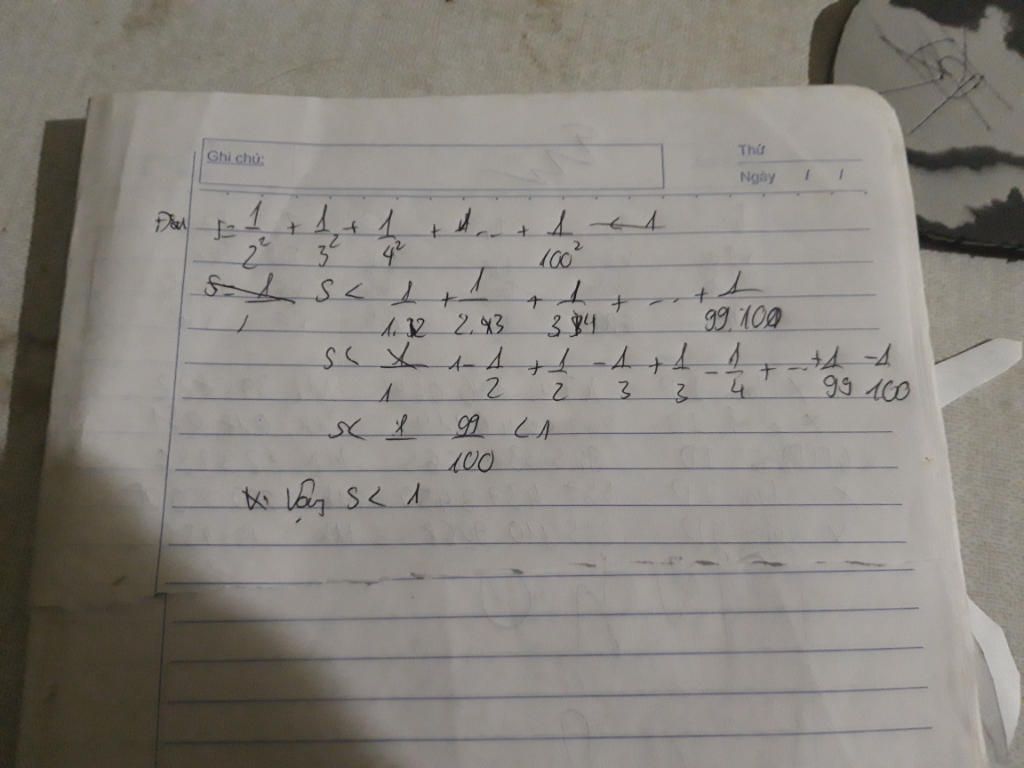 Ghi chú:
Thứ
Ngày / /
Đặt S = 1/2² + 1/3² + 1/4² + ... + 1/100² < 1
S < 1/1.2 + 1/2.3 + 1/3.4 + ... + 1/99.100
S < 1 - 1/2 + 1/2 - 1/3 + 1/3 - 1/4 + ... + 1/99 - 1/100
S < 99/100 < 1
Vậy S < 1